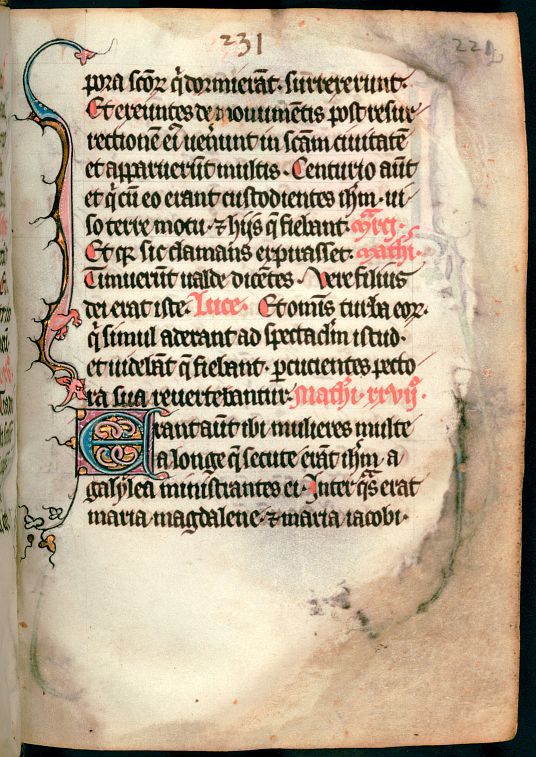 231
221
pora scõꝝ q̃ dormierãt · surrexerunt·
Et exeuntes de monumẽtis post resur
rectionẽ eiꝰ uenerunt in scãm ciuitatẽ
et apparuerũt multis · Centurio aũt
et q̃ cũ eo erant custodientes ihm̃ · ui
so terre motu · ⁊ hijs q̃ fiebant·
Et qꝛ sic clamans expirasset· mathi·
Timuerunt ualde dicẽtes · Vere filius
dei erat iste · Luce · Et omĩs turba eoꝝ·
q̃ simul aderant ad spectaclm̃ istud·
et uidebãt q̃ fiebant · ꝑcucientes pecto
ra sua reuertebantur · Mathi · xxvij·
Erant aũt ibi mulieres multe
a longe q̃ secute erãt ihm̃ a
galylea ministrantes ei · Inter q̃s erat
maria magdalene · ⁊ maria iacobi·